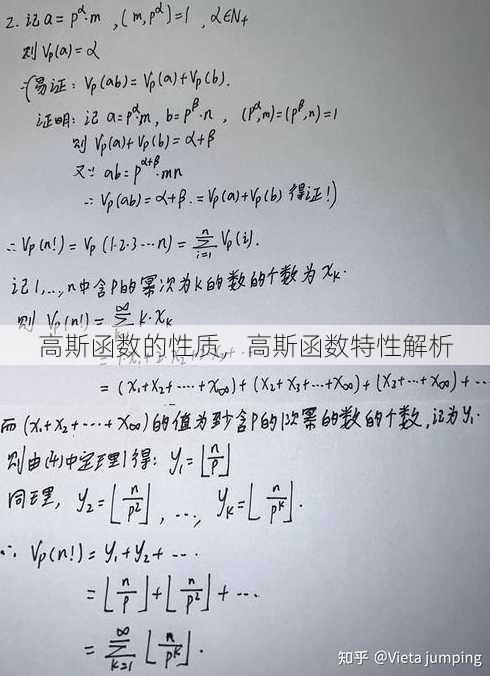 2. 记 a = p^α·m , (m, p^α)=1 , α∈N₊
则 Vp(a) = α
(易证: Vp(ab) = Vp(a)+Vp(b).
证明: 记 a=p^α·m, b=p^β·n , (p^α,m)=(p^β,n)=1
则 Vp(a)+Vp(b) = α+β
又∵ ab = p^(α+β)·mn
∴ Vp(ab)=α+β.=Vp(a)+Vp(b) 得证!)
∴ Vp(n!) = Vp(1·2·3⋯n) = ∑_{i=1}^{n} Vp(i).
记1,…,n中含P的幂次为k的数的个数为 x_k.
则 Vp(n!) = ∑^{∞} k·x_k
高斯函数的性质，高斯函数特性解析
= (x₁+x₂+⋯+x∞)+(x₂+x₃+⋯+x∞)+(x₃+⋯+x∞)+⋯
而 (x₁+x₂+⋯+x∞) 的值为至少含P的1次幂的数的个数, 记为 y₁.
则由(4)中定理1得: y₁=⌊n/p⌋
同理, y₂=⌊n/p²⌋ , ⋯, y_k=⌊n/p^k⌋.
∴ Vp(n!) = y₁+y₂+⋯.
= ⌊n/p⌋+⌊n/p²⌋+⋯
= ∑_{k=1}^{∞} ⌊n/p^k⌋.
知乎 @Vieta jumping